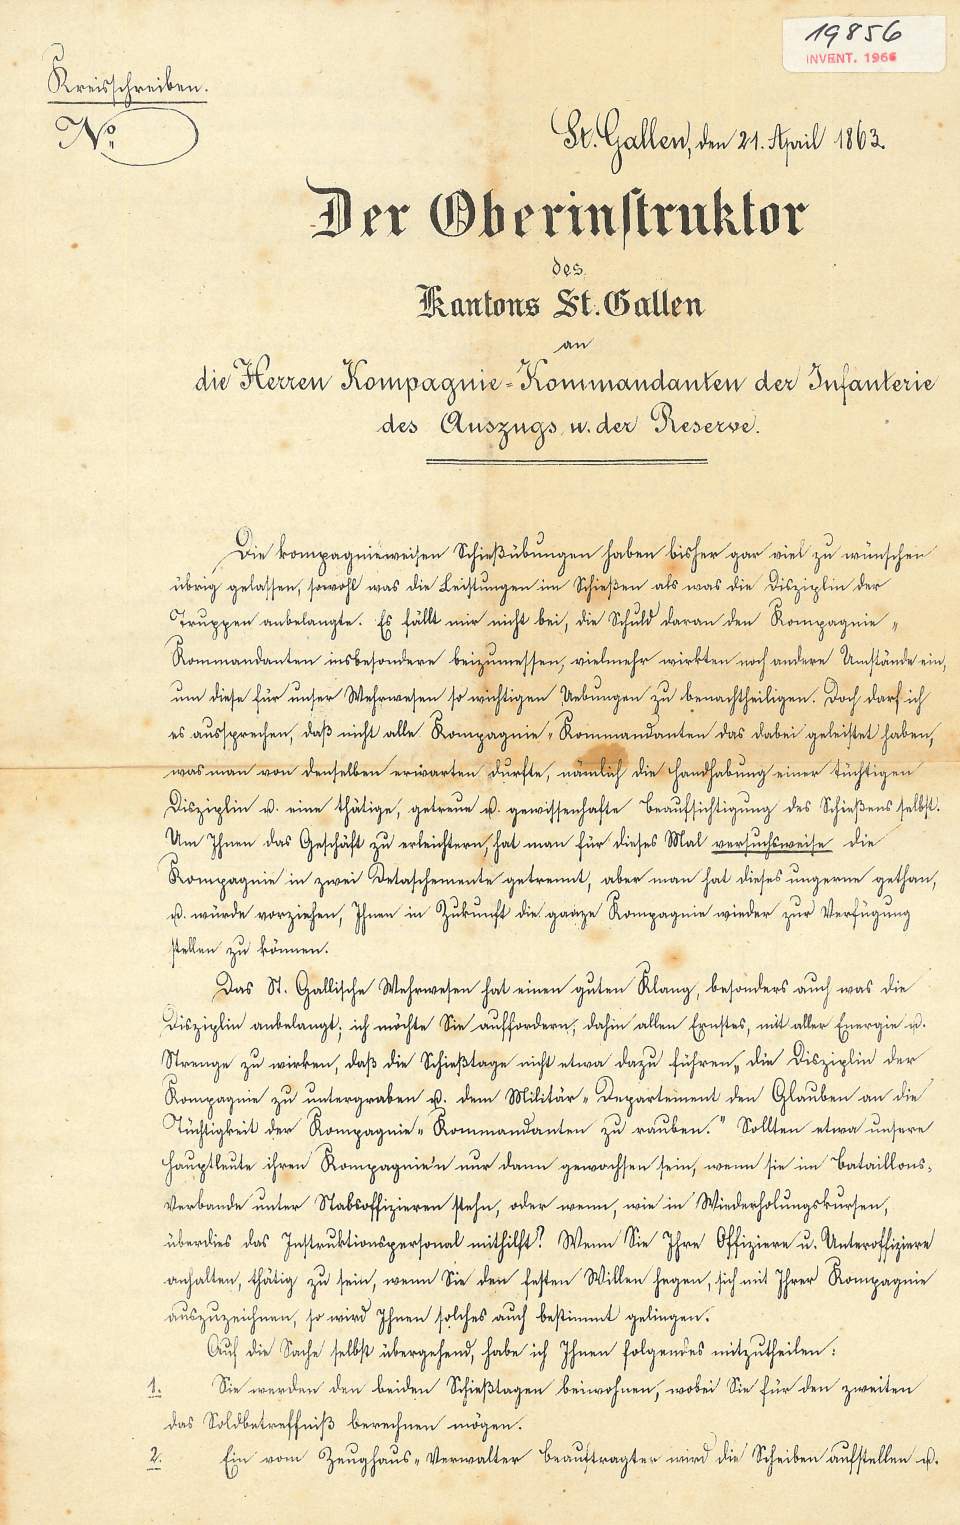 19856
INVENT. 1966
Kreisschreiben.
No
St. Gallen, den 21. April 1863.
Der Oberinstruktor
des
Kantons St. Gallen
an
die Herren Kompagnie-Kommandanten der Infanterie
des Auszugs u. der Reserve.
Die kompagnieweisen Schießübungen haben bisher gar viel zu wünschen
übrig gelassen, sowohl was die Leistungen im Schießen als was die Disziplin der
Truppen anbelangte. Es fällt mir nicht bei, die Schuld daran den Kompagnie-
Kommandanten insbesondere beizumessen, vielmehr wirkten noch andere Umstände ein,
um diese für unser Wehrwesen so wichtigen Uebungen zu benachtheiligen. Doch darf ich
es aussprechen, daß nicht alle Kompagnie-Kommandanten das dabei geleistet haben,
was man von denselben erwarten durfte, nämlich die Handhabung einer tüchtigen
Disziplin u. eine thätige, getreue u. gewissenhafte Beaufsichtigung des Schießens selbst.
Um Ihnen das Geschäft zu erleichtern, hat man für dieses Mal versuchsweise die
Kompagnie in zwei Detaschemente getrennt, aber man hat dieses ungerne gethan,
u. würde vorziehen, Ihnen in Zukunft die ganze Kompagnie wieder zur Verfügung
stellen zu können.
Das St. Gallische Wehrwesen hat einen guten Klang, besonders auch was die
Disziplin anbelangt; ich möchte Sie auffordern, dahin allen Ernstes, mit aller Energie u.
Strenge zu wirken, daß die Schießtage nicht etwa dazu führen „die Disziplin der
Kompagnie zu untergraben u. dem Militär-Departement den Glauben an die
Tüchtigkeit der Kompagnie-Kommandanten zu rauben.“ Sollten etwa unsere
Hauptleute ihren Kompagnie'n nur dann gewachsen sein, wenn sie im Bataillons-
Verbande unter Stabsoffizieren stehn, oder wenn, wie in Wiederholungskursen,
überdies das Instruktionspersonal mithilft? Wenn Sie Ihre Offiziere u. Unteroffiziere
anhalten, thätig zu sein, wenn Sie den festen Willen hegen, sich mit Ihrer Kompagnie
auszuzeichnen, so wird Ihnen solches auch bestimmt gelingen.
Auf die Sache selbst übergehend, habe ich Ihnen folgendes mitzutheilen:
1. Sie werden den beiden Schießtagen beiwohnen, wobei Sie für den zweiten
das Soldbetreffniß berechnen mögen.
2. Ein vom Zeughaus-Verwalter beauftragter wird die Scheiben aufstellen u.